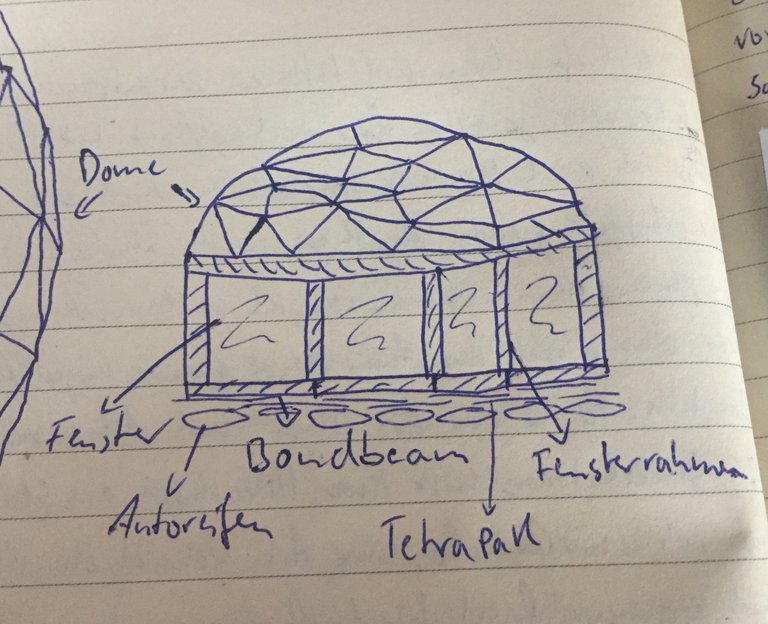 Dome
Fenster
Bondbeam
Fensterrahmen
Autoreifen
Tetrapak